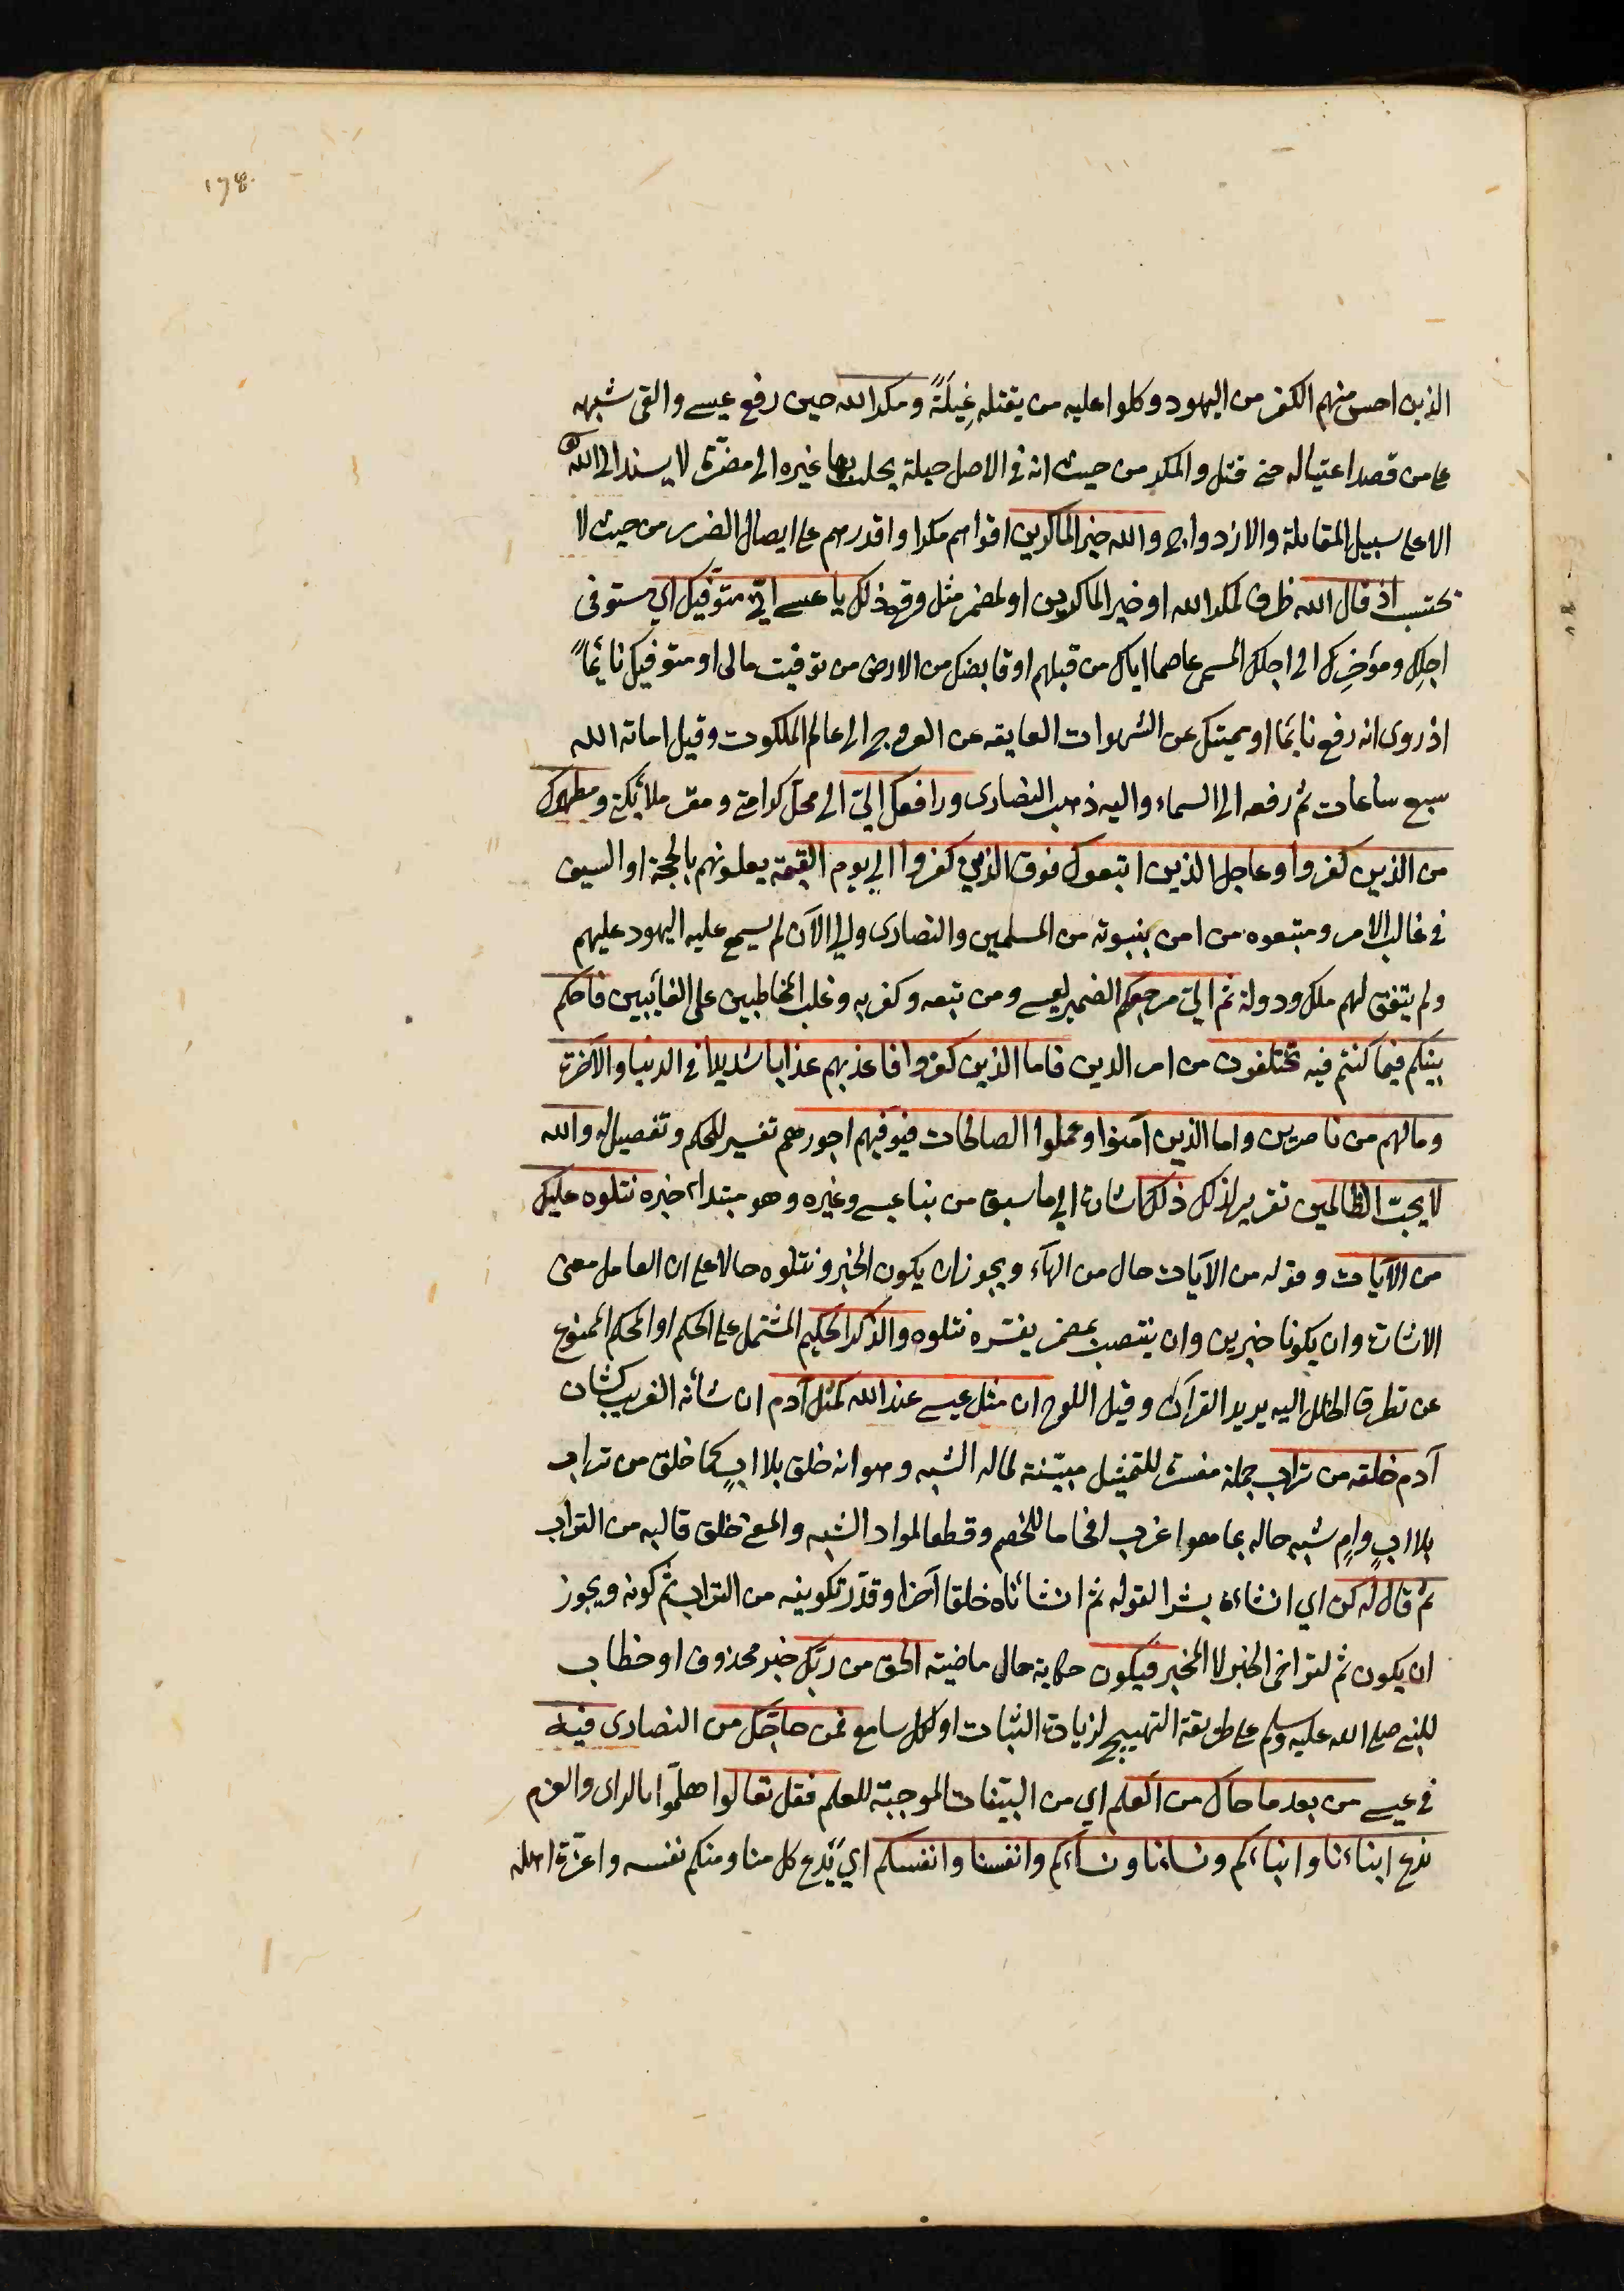 ١٧٤
الذين احس منهم الكفر من اليهود وكلوا عليه من يقتله غِيلَةً ومكر الله حين رفع عيسى والقى شبهه
على من قصد اغتياله حتى قتل والمكر من حيث انه في الاصل حيلة يجلب بها غيره الى مضرة لا يسند الى الله تعالى
الا على سبيل المقابلة والازدواج والله خير الماكرين اقواهم مكرا واقدرهم على ايصال الضرر من حيث لا
يحتسب اذ قال الله ظرف لمكر الله او خير الماكرين او لمضمر مثل وقع ذلك يا عيسى اني متوفيك اي مستوفي
اجلك ومؤخرك الى اجلك المسمى عاصما اياك من قبلهم او قابضك من الارض من توفيت مالى او متوفيك نائماً
اذ روى انه رفع نايما او مميتك عن الشهوات العايقة عن العروج الى عالم الملكوت وقيل اماته الله
سبع ساعات ثم رفعه الى السماء واليه ذهب النصارى ورافعك اليّ الى محل كرامتي ومقر ملائكتي ومطهرك
من الذين كفروا وجاعل الذين اتبعوك فوق الذين كفروا الى يوم القيمة يعلونهم بالحجة او السيف
في غالب الامر ومتبعوه من امن بنبوته من المسلمين والنصارى والى الآن لم يسمع عليه اليهود عليهم
ولم يتفق لهم ملك ودولة ثم اليّ مرجعكم الضمير لعيسى ومن تبعه وكفر به وغلب المخاطبين على الغائبين فاحكم
بينكم فيما كنتم فيه تختلفون من امر الدين فاما الذين كفروا فاعذبهم عذابا شديدا في الدنيا والآخرة
وما لهم من ناصرين واما الذين آمنوا وعملوا الصالحات فيوفيهم اجورهم تفسير للحكم وتفصيل له والله
لا يحبّ الظالمين تقرير لذلك ذلك اشارة الى ما سبق من نبا عيسى وغيره وهو مبتداء خبره نتلوه عليك
من الآيات وقوله من الآيات حال من الهآء ويجوز ان يكون الخبر ونتلوه حالا على ان العامل معنى
الاشارة وان يكونا خبرين وان ينتصب بمضمر يفسره نتلوه والذكر الحكيم المشتمل على الحكم او المحكم الممنوع
عن تطرق الخلل اليه يريد القرآن وقيل اللوح ان مثل عيسى عند الله كمثل آدم ان شأنه الغريب كشان
آدم خلقه من تراب جملة مفسرة للتمثيل مبيّنة لما له الشبه وهو انه خلق بلا ابٍ كما خلق من تراب
بلا ابٍ وامٍ شبه حاله بما هو اغرب افحاما للخصم وقطعا لمواد الشبه والمعنى خلق قالبه من التراب
ثم قال له كن اي انشاءه بشرا لقوله ثم انشأناه خلقا آخر او قدّر تكوينه من التراب ثم كونه ويجوز
ان يكون ثم لتراخى الخبر لا المخبر فيكون حكاية حال ماضية الحق من ربّك خبر محذوف او خطاب
للنبي صلى الله عليه وسلم على طريقة التهييج لزيادة الثبات او لكل سامع فمن حاجّك من النصارى فيه
في عيسى من بعد ما جاك من العلم اي من البيّنات الموجبة للعلم فقل تعالوا هلمّوا بالراى والعزم
ندع ابناءنا وابناءكم ونساءنا ونساءكم وانفسنا وانفسكم اي يَدع كل منا ومنكم نفسه واعزّة اهله